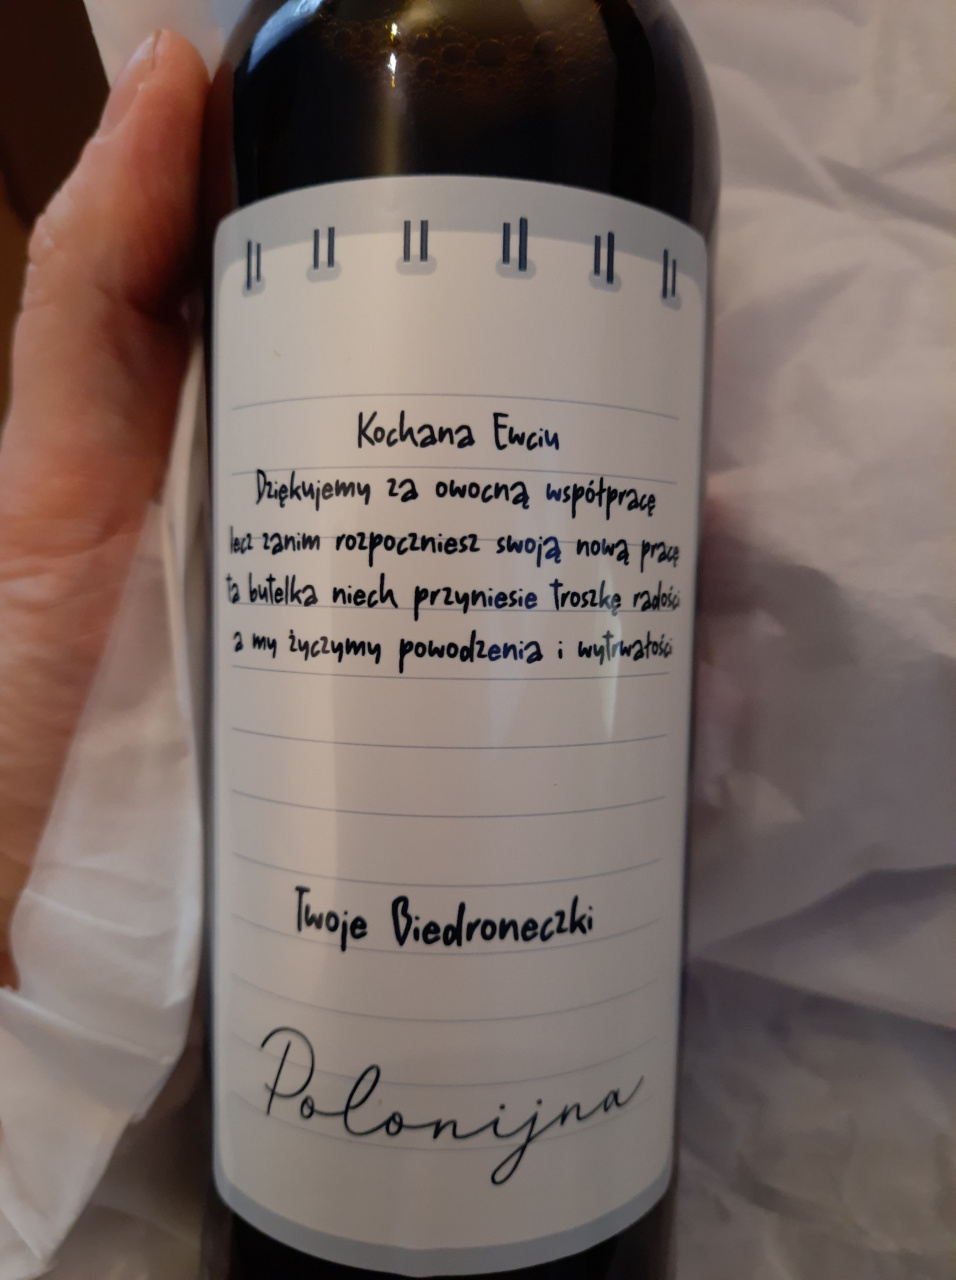 Kochana Ewciu
Dziękujemy za owocną współpracę
lecz zanim rozpoczniesz swoją nową pracę
ta butelka niech przyniesie troszkę radości
a my życzymy powodzenia i wytrwałości
Twoje Biedroneczki
Polonijna